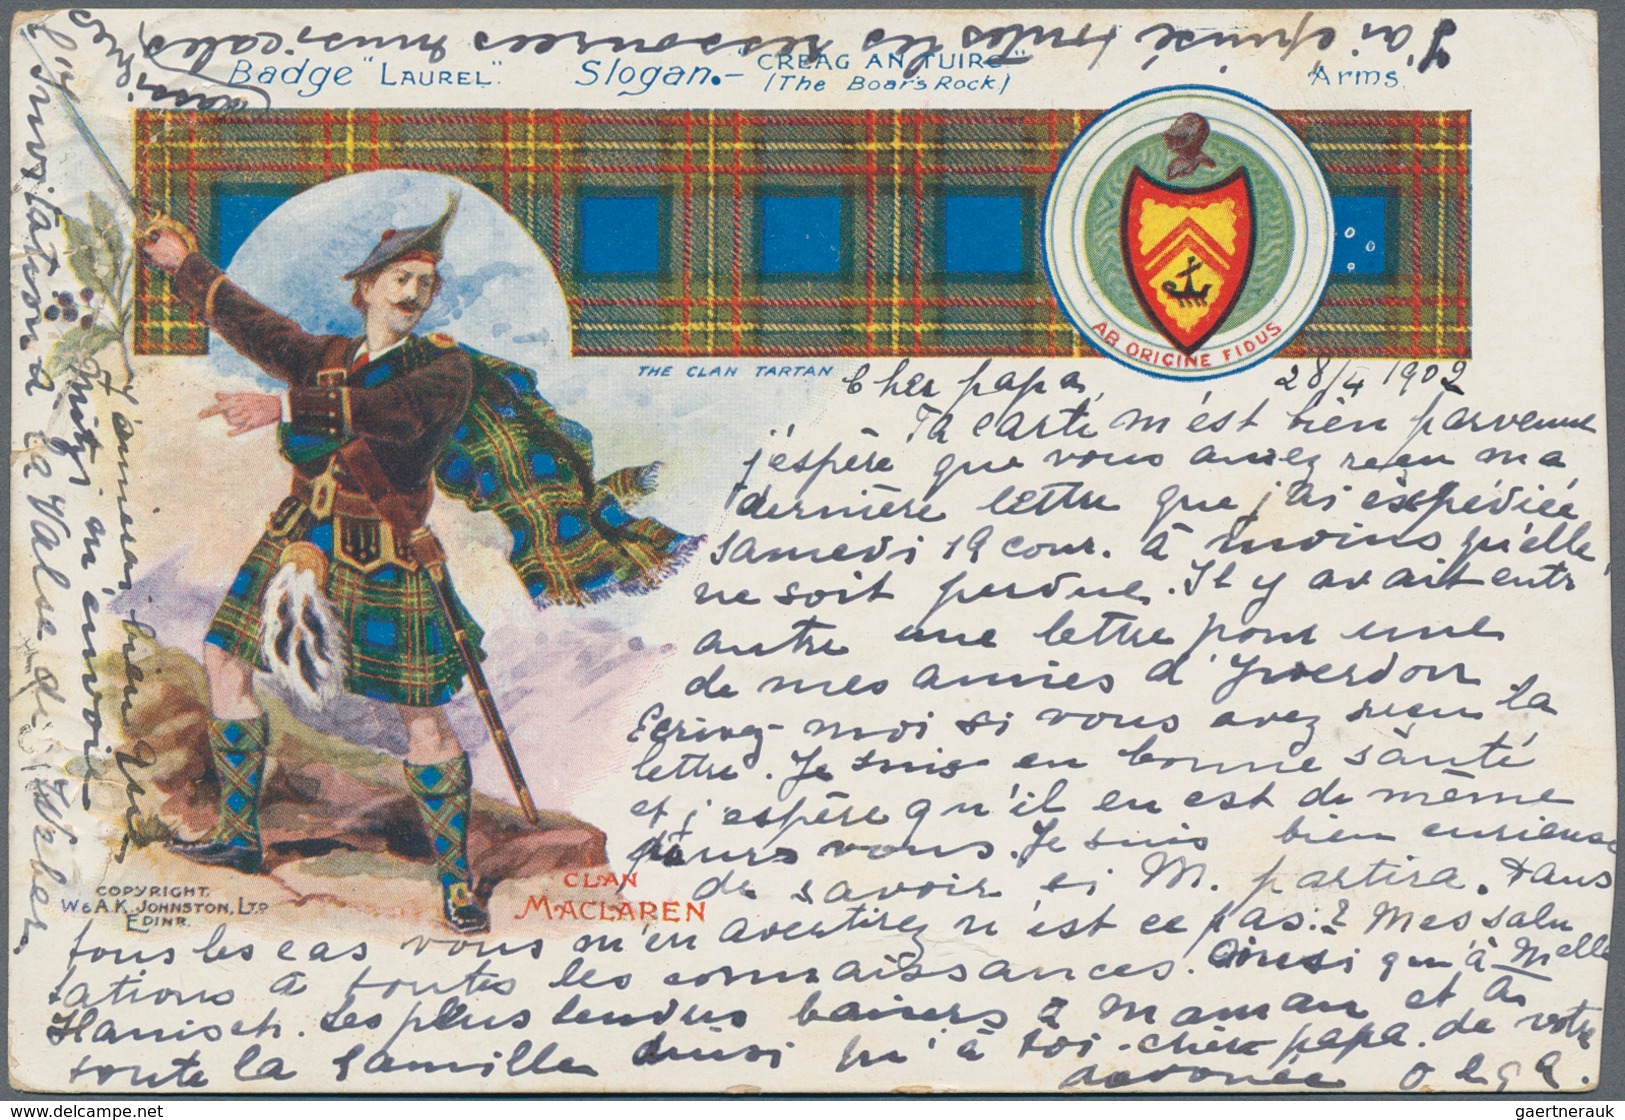 J'ai épuisé toutes les ressources musicales
Badge "LAUREL".
Slogan.- "CREAG AN TUIRC"
(The Boar's Rock)
Arms.
AB ORIGINE FIDUS
THE CLAN TARTAN
Cher papa, 28/4 1902
Ta carte m'est bien parvenue
j'espère que vous avez reçu ma
dernière lettre que j'ai éxpédiée
samedi 19 cour. à moins qu'elle
ne soit perdue. Il y avait entr'
autre une lettre pour une
de mes amies d'Yverdon
Ecrivez-moi si vous avez reçu la
lettre. Je suis en bonne santé
et j'espère qu'il en est de même
pour vous. Je suis bien curieuse
de savoir si M. partira. Dans
tous les cas vous m'en avertirez n'est ce pas? Mes salu
tations à toutes les connaissances. Ainsi qu'à Melle
Hanisch. Les plus tendres baisers à maman et à
toute la famille ainsi qu'à toi cher papa. de votre
dévouée Olga.
CLAN
MACLAREN
COPYRIGHT.
W & A.K. JOHNSTON, LTD
EDINR.
J'aimerais bien que
Mitzi m'envoie
l'Invitation à la Valse de Weber
gaertnerauk © delcampe.com